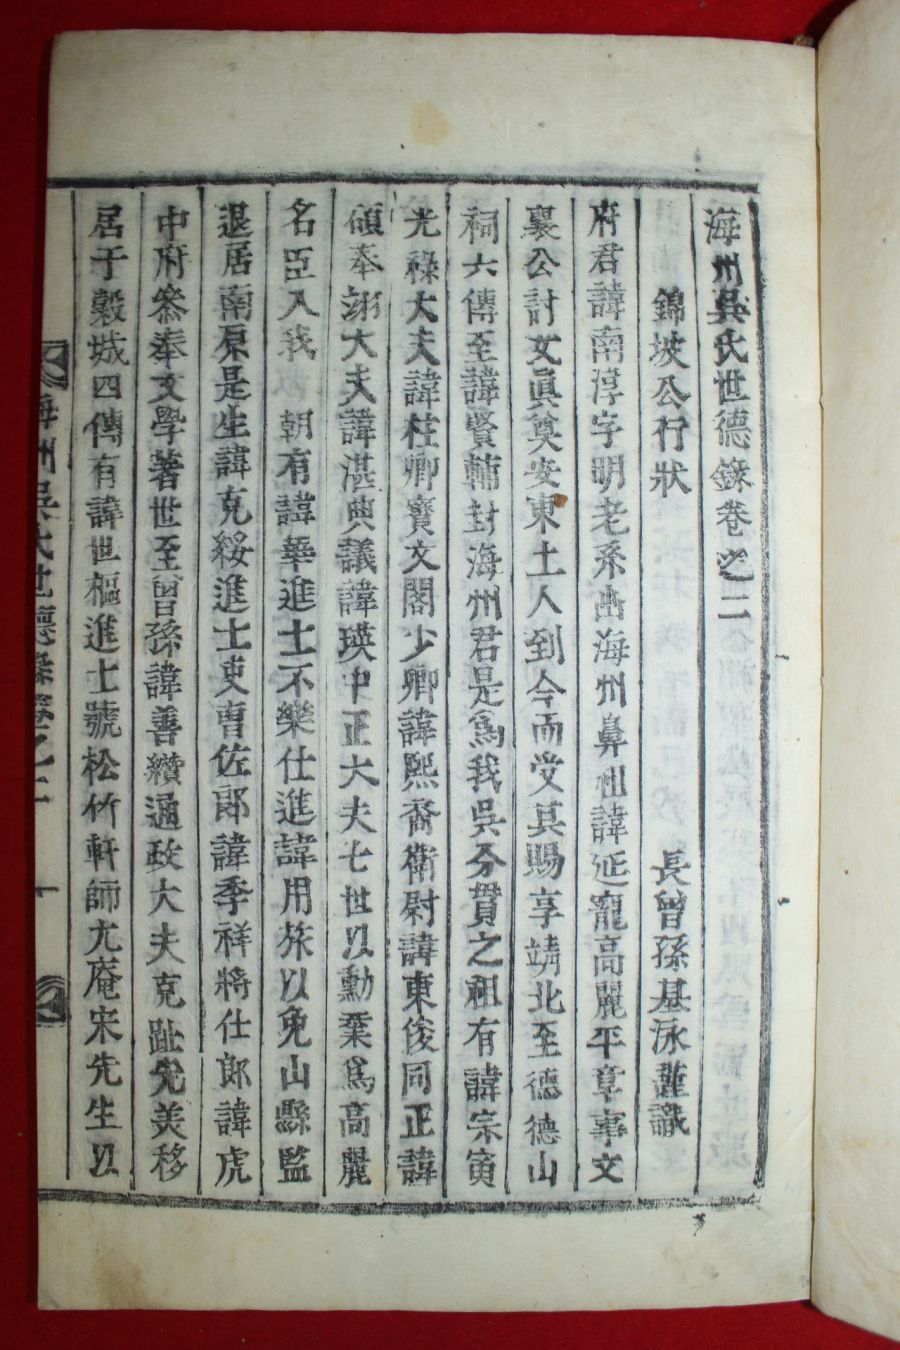 海州吳氏世德錄卷之二
錦坡公行狀　長曾孫基泳謹識
府君諱南淳字明老系出海州鼻祖諱延寵高麗平章事文
襄公討女眞奠安東土人到今而受其賜享靖北至德德山
祠六傳至諱賢輔封海州君是爲我吳分貫之祖有諱宗寅
光祿大夫諱柱卿寶文閣少卿諱熙裔衛尉諱東俊同正諱
碩奉翊大夫諱湛典議諱瑛中正大夫七世以勳業爲高麗
名臣入我　朝有諱華進士不樂仕進諱用旅以兔山縣監
退居南原是生諱克綏進士吏曹佐郞諱季祥將仕郞諱虎
中府叅奉文學著世至曾孫諱善纘通政大夫克趾先美移
居于穀城四傳有諱世樞進士號松竹軒師尤庵宋先生以
海州吳氏世德錄卷之二　一